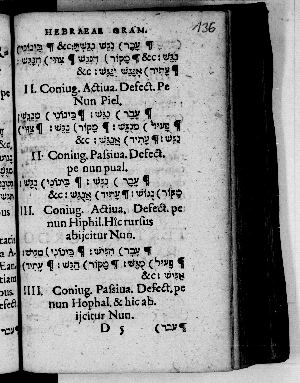 HEBRAEAE GRAM. 136
¶ עבר) נגש נגשת: &c ¶ בינוני)
נגש: &c ¶ מקור) הנגש: ¶ צווי) הנגש:
¶ עתיד) אנגש ינגש: &c
II. Coniug. Actiua. Defect. Pe
Nun Piel.
¶ עבר) נגש: &c ¶ בינוני) מנגש:
¶ פעול) מנגש: ¶ מקור) נגש: ¶ צווי)
נגש: ¶ עתיד) אנגש: &c
II. Coniug. Passiua. Defect.
pe nun pual.
¶ עבר) נגש: ¶ בינוני) נגש:
¶ מקור) נגש: ¶ עתיד) אנגש: &c
III. Coniug. Actiua, Defect. pe
nun Hiphil. Hic rursus
abijcitur Nun.
¶ עבר) הגיש: ¶ בינוני) מגיש:
¶ פעול) מגש: ¶ מקור) הגש: ¶ עתיד)
אגיש: &c
IIII. Coniug. Passiua. Defect. pe
nun Hophal. & hic ab-
ijcitur Nun.
D 5 ¶ עבר)